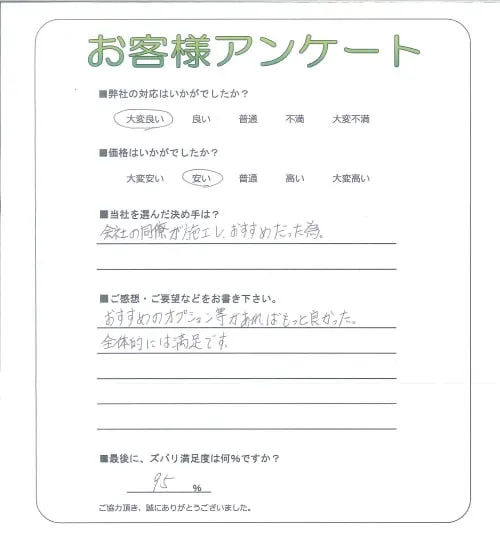 お客様アンケート
■弊社の対応はいかがでしたか？
大変良い 良い 普通 不満 大変不満
■価格はいかがでしたか？
大変安い 安い 普通 高い 大変高い
■当社を選んだ決め手は？
会社の同僚が施工し、おすすめだった為。
■ご感想・ご要望などをお書き下さい。
おすすめのオプション等があればもっと良かった。
全体的には満足です。
■最後に、ズバリ満足度は何％ですか？
95 ％
ご協力頂き、誠にありがとうございました。